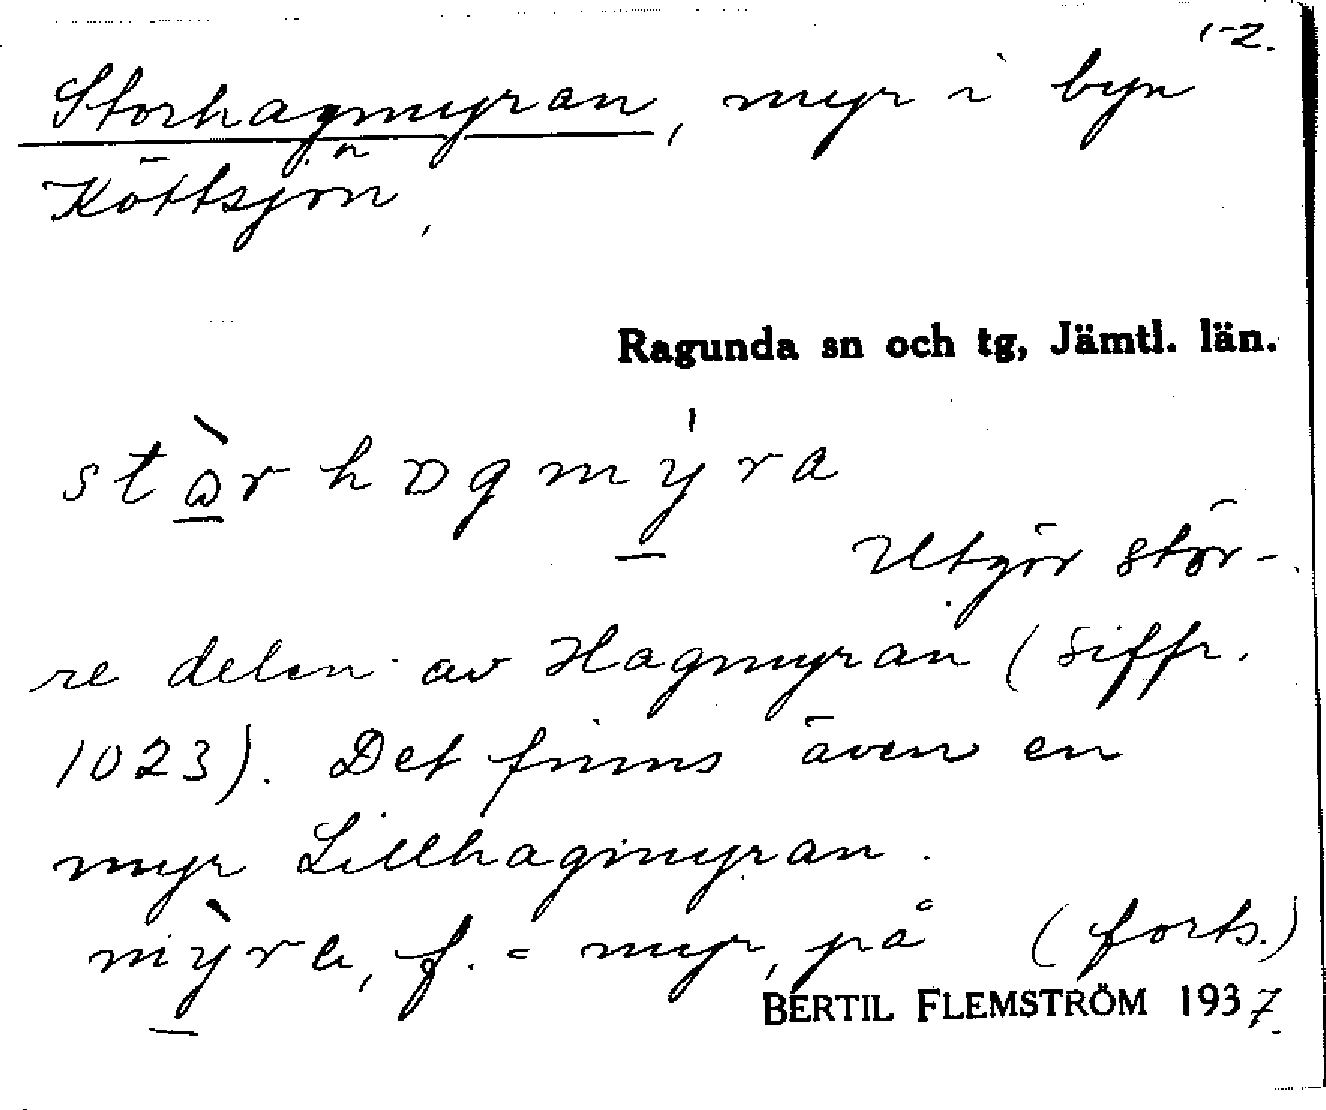 1-2.
Storhagmyran, myr i byn
Köttsjön,
Ragunda sn och tg, Jämtl. län.
stɷ̀rhɒgmýra
Utgör stör-
re delen av Hagmyran (siffr.
1023). Det finns även en
myr Lillhagmyran.
mỳra, f. = myr, på (forts.)
BERTIL FLEMSTRÖM 1937.